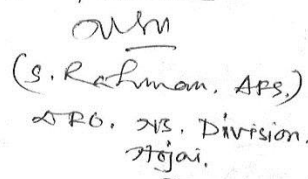 (S. Rahman. APS.)
DRO. NB. Division.
Hojai.